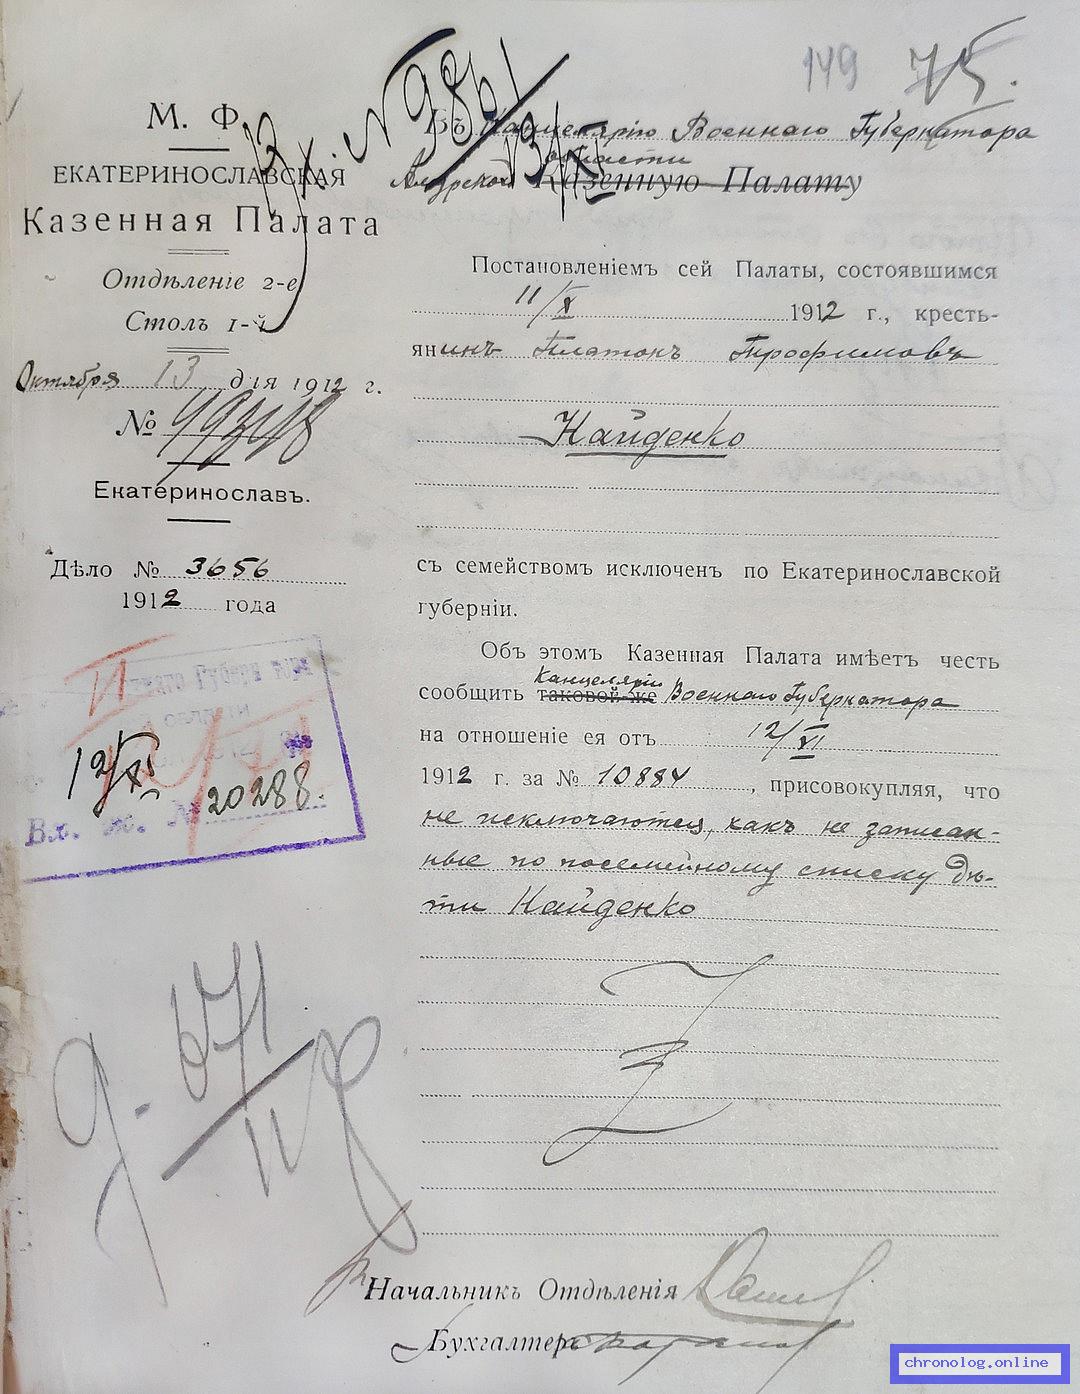 149 75.
М. Ф.
ЕКАТЕРИНОСЛАВСКАЯ
Казенная Палата
Отдѣленіе 2-е
Столъ 1-й
Октября 13 дня 1912 г.
№ 49348
Екатеринославъ.
Дѣло № 3656
1912 года
№ 9861
13/XI
Въ Канцелярію Военнаго Губернатора
Амурской области Казенную Палату
Постановленіемъ сей Палаты, состоявшимся
11/X 1912 г., кресть-
янинъ Платонъ Трофимовъ
Найденко
съ семействомъ исключенъ по Екатеринославской
губерніи.
Объ этомъ Казенная Палата имѣетъ честь
Канцеляріи
сообщить таковой-же Военнаго Губернатора
на отношеніе ея отъ 12/VI
1912 г. за № 10884, присовокупляя, что
не исключаются, какъ не записан-
ные по посемейному списку дѣ-
ти Найденко
VI
области
12/XI
Вх. №
20288.
Д. 671
Начальникъ Отдѣленія
Бухгалтеръ
chronolog.online